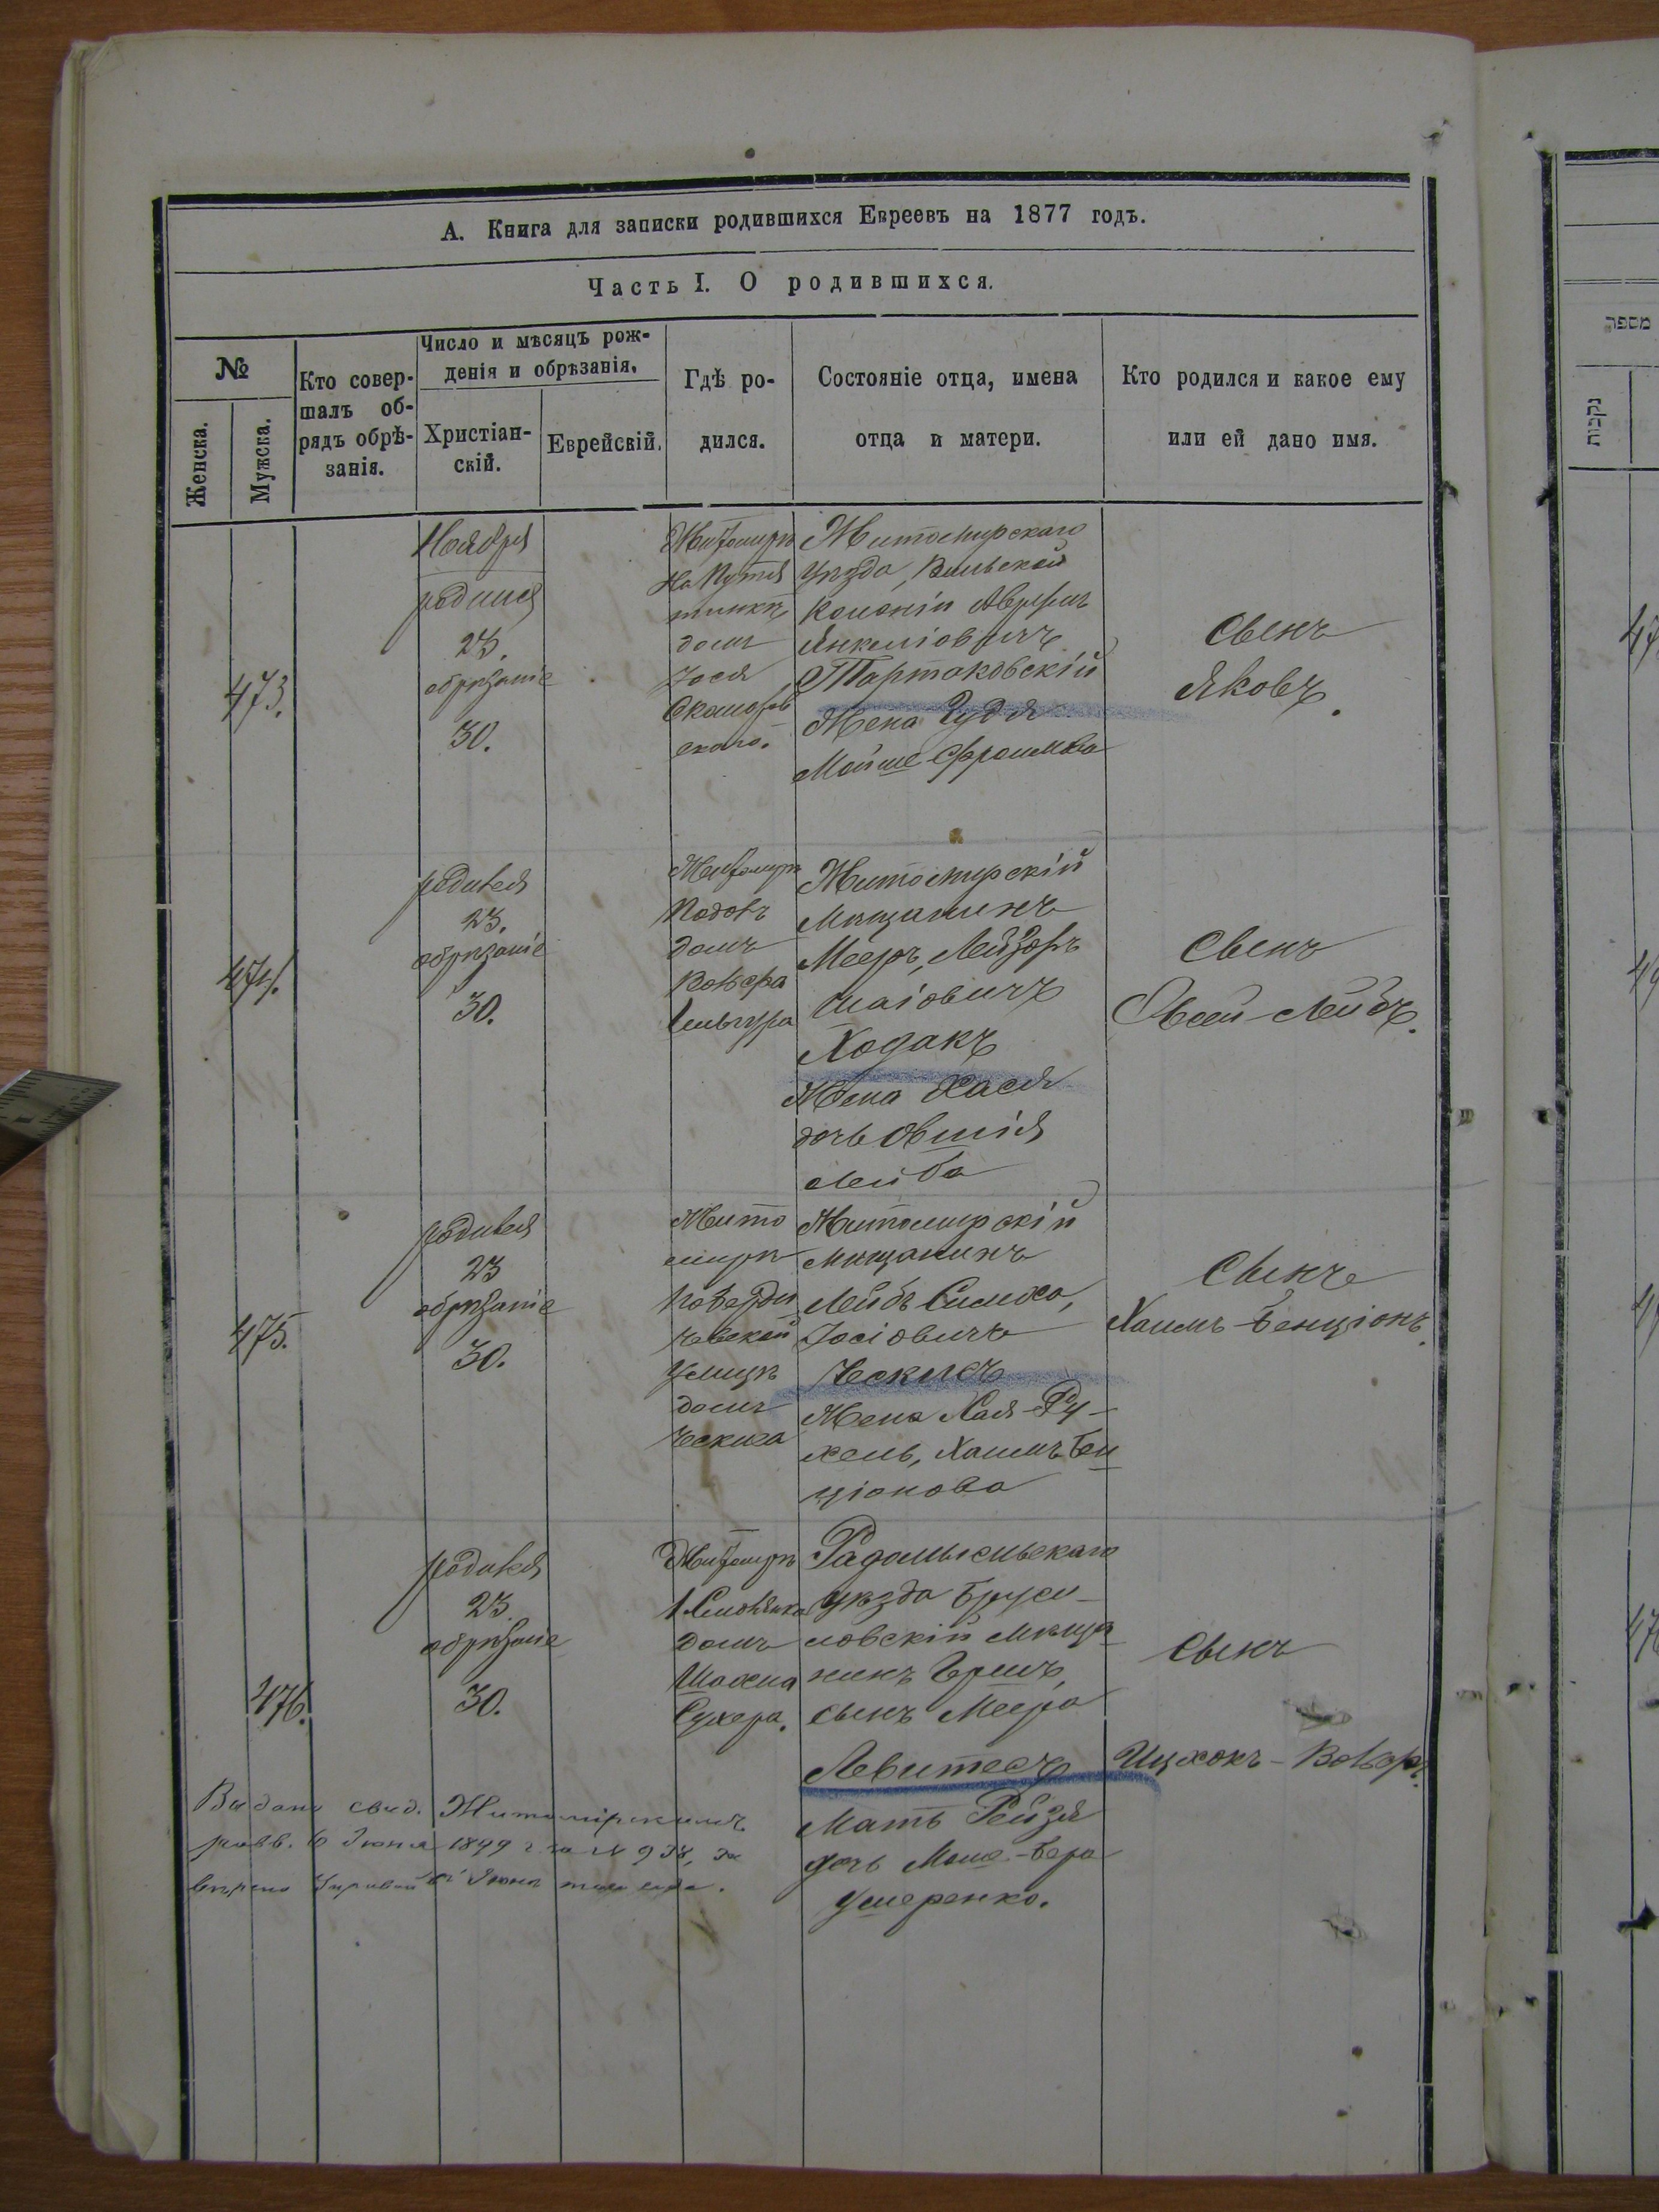 А. Книга для записки родившихся Евреевъ на 1877 годъ.
Часть I. О родившихся.
№
Женска.
Мужска.
Кто совер-
шалъ об-
рядъ обрѣ-
занія.
Число и мѣсяцъ рож-
денія и обрѣзанія.
Христіан-
скій.
Еврейскій.
Гдѣ ро-
дился.
Состояніе отца, имена
отца и матери.
Кто родился и какое ему
или ей дано имя.
473.
Ноября
родился
23.
обрѣзаніе
30.
Житомирѣ
На Путя
тинкѣ
домъ
Іося
Скаморов
скаго.
Житомирскаго
уѣзда, Вильской
Колоніи
Янкеліовичъ
Тартаковскій
Жена Гудя
Мойше Фроимова
Сынъ
Яковъ.
474.
родився
23.
обрѣзаніе
30.
Житомирѣ
Подолъ
домъ
Вольфа
Житомирскій
Мѣщанинъ
Мееръ, Лейзоръ
Шаіовичъ
Ходакъ
Жена Хася
дочь Овшія
Лейба
Сынъ
Лейбъ.
475.
родився
23
обрѣзаніе
30.
Жито
мирѣ
по Берди
чевской
улицѣ
домъ
Ческиса
Житомирскій
Мѣщанинъ
Лейбъ Симха,
Іосіовичъ
Ческисъ
Жена Хая-Ру-
хель, Хаимъ Бен
ціонова
Сынъ
Хаимъ-Бенціонъ.
476.
родився
23.
обрѣзаніе
30.
Житомирѣ
домъ
Шахна
Сухера.
Радомысльскаго
уѣзда Бруси-
ловскій Мѣща
нинъ Гершъ,
сынъ Меера
Левитесъ
Мать Рейзя
дочь Моше-Бера
Ушеренко.
Сынъ
Ицхокъ-Вольфъ.
Выдано свид. Житомірскимъ
равв. 6 Іюня 1899 г за № 938, за
Управой Іюня того года.
מספר
נקבות